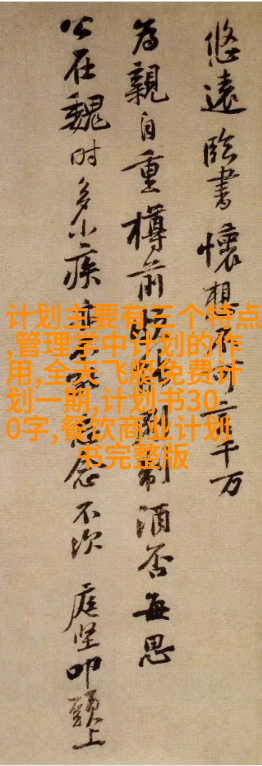 悠遠臨書懷想不言千万
為親自重樽前制酒否每思
公在魏时多小疾念不次 庭坚叩頭上
计划主要有三个特点
,管理学中计划的作
用,全天飞艇免费计
划一期,计划书30
0字,餐饮商业计划
书完整版